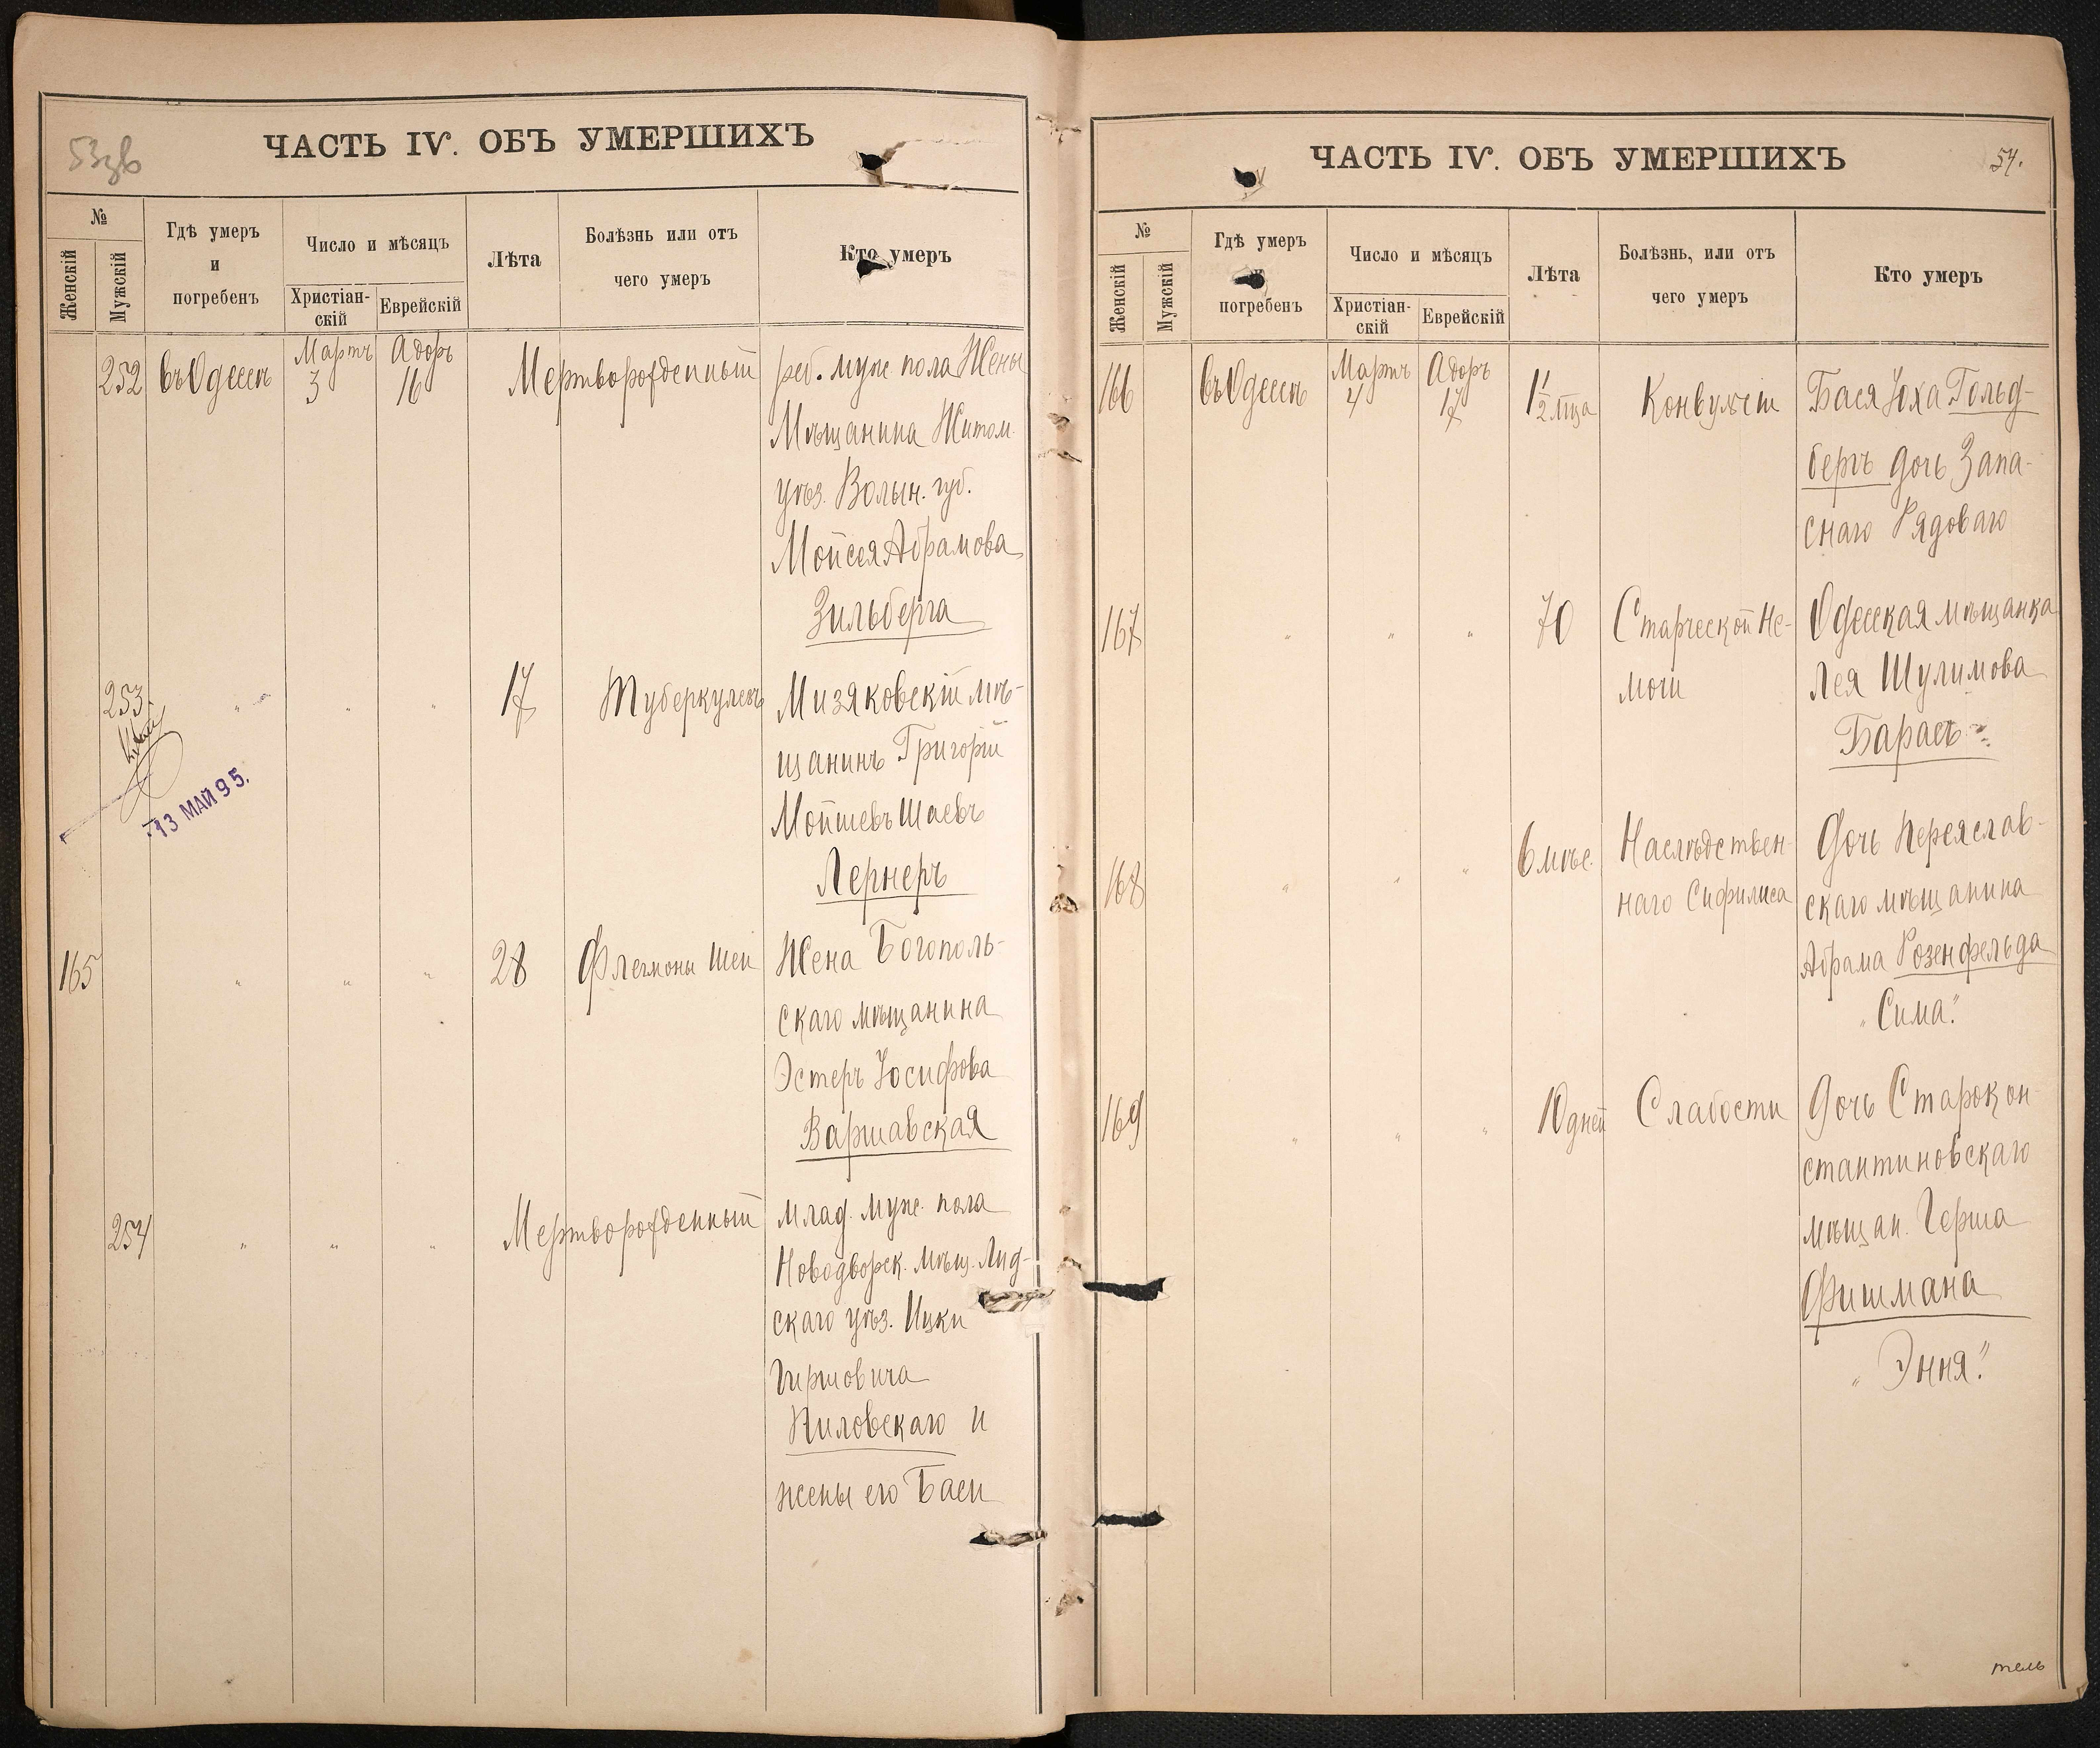 53зв
ЧАСТЬ IV. ОБЪ УМЕРШИХЪ
№
Женскій
Мужскій
Гдѣ умеръ
и
погребенъ
Число и мѣсяцъ
Христіан-
скій
Еврейскій
Лѣта
Болѣзнь или отъ
чего умеръ
Кто умеръ
252 въ Одессѣ Мартъ 3 Адоръ 16 Мертворожденный реб. муж. пола Жены
Мѣщанина Житом.
уѣз. Волын. губ.
Мойсея Абрамова
Зильберга
253 " " " 17 Туберкулезъ Мизяковскій мѣ-
щанинъ Григорій
Мойшевъ Шаевъ
Лернеръ
13 МАЙ 95.
165 " " " 28 Флегмоны Шеи Жена Богополь-
скаго мѣщанина
Эстеръ Іосифова
Варшавская
254 " " " Мертворожденный млад. муж. пола
Новодворск. мѣщ. Лид-
скаго уѣз. Ицки
Гиршовича
Пиловскаго и
жены его Баси
ЧАСТЬ IV. ОБЪ УМЕРШИХЪ
54.
№
Женскій
Мужскій
Гдѣ умеръ
погребенъ
Число и мѣсяцъ
Христіан-
скій
Еврейскій
Лѣта
Болѣзнь, или отъ
чего умеръ
Кто умеръ
166 въ Одессѣ Мартъ 4 Адоръ 17 1 1/2 мца Конвульсіи Бася Іоха Гольд-
бергъ дочь Запа-
снаго Рядоваго
167 " " " 70 Старческой Не- Одесская мѣщанка
мочи Лея Шулимова
Барасъ
168 " " " 6 мѣс. Наслѣдствен- Дочь Переяслав-
наго Сифилиса скаго мѣщанина
Абрама Розенфельда
"Сима."
169 " " " 10 дней Слабости Дочь Старокон-
стантиновскаго
мѣщан. Герша
Фишмана
"Эння."
тель